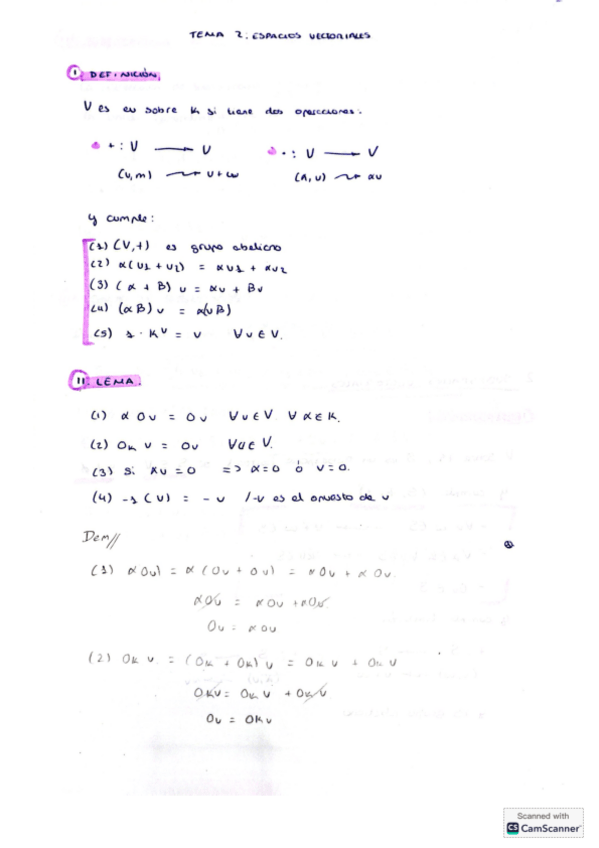 TEMA 2: ESPACIOS VECTORIALES
I DEFINICIÓN.
V es eu sobre K si tiene dos operaciones:
+ : V ⟶ V    · : V ⟶ V
(u,m) ⟿ u+w    (λ,u) ⟿ αu
y cumple:
(1) (V,+) es grupo abeliano
(2) α(u1 + u2) = αu1 + αu2
(3) (α + B) u = αu + Bu
(4) (αB) u = α(uB)
(5) 1 · Kᵁ = v ∀u∈V.
II. LEMA.
(1) α 0u = 0u ∀u∈V ∀α∈K.
(2) 0k v = 0u ∀u∈V.
(3) si αu = 0 => α=0 ó v=0.
(4) -1 (u) = -u /-v es el opuesto de u
Dem//
(1) α0u) = α (0u + 0u) = α0u + α0u.
α0u = α0u + α0u
0u = α0u
(2) 0k v = (0k + 0k) v = 0k v + 0k v
0kv = 0k v + 0k v
0u = 0kv
Scanned with
CS CamScanner